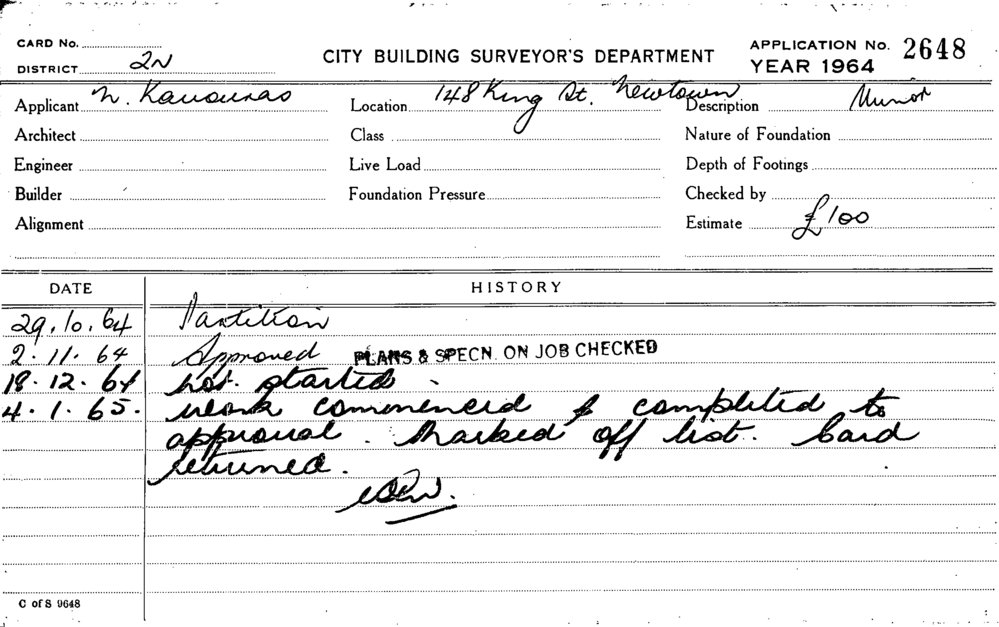 CARD No.
DISTRICT 2N
CITY BUILDING SURVEYOR'S DEPARTMENT
APPLICATION No. 2648
YEAR 1964
Applicant N.
Location 148 King St. Newtown
Description Minor
Architect
Class
Nature of Foundation
Engineer
Live Load
Depth of Footings
Builder
Foundation Pressure
Checked by
Alignment
Estimate £100
DATE HISTORY
29.10.64 Partition
2.11.64 Approved PLANS & SPECN. ON JOB CHECKED
18.12.64 Not started.
4.1.65. Work commenced & completed to
approval. Marked off list. Card
returned.
C of S 9648